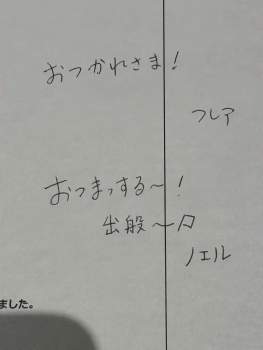 おつかれさま!
フレア
おつまっする〜!
出般〜夕
ノエル
ました。